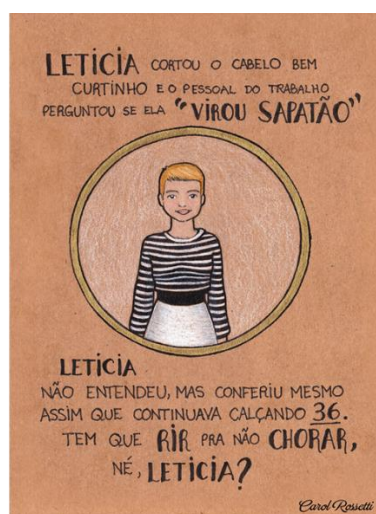 LETÍCIA CORTOU O CABELO BEM
CURTINHO E O PESSOAL DO TRABALHO
PERGUNTOU SE ELA "VIROU SAPATÃO"
LETÍCIA
NÃO ENTENDEU, MAS CONFERIU MESMO
ASSIM QUE CONTINUAVA CALÇANDO 36.
TEM QUE RIR PRA NÃO CHORAR,
NÉ, LETÍCIA?
Carol Rossetti